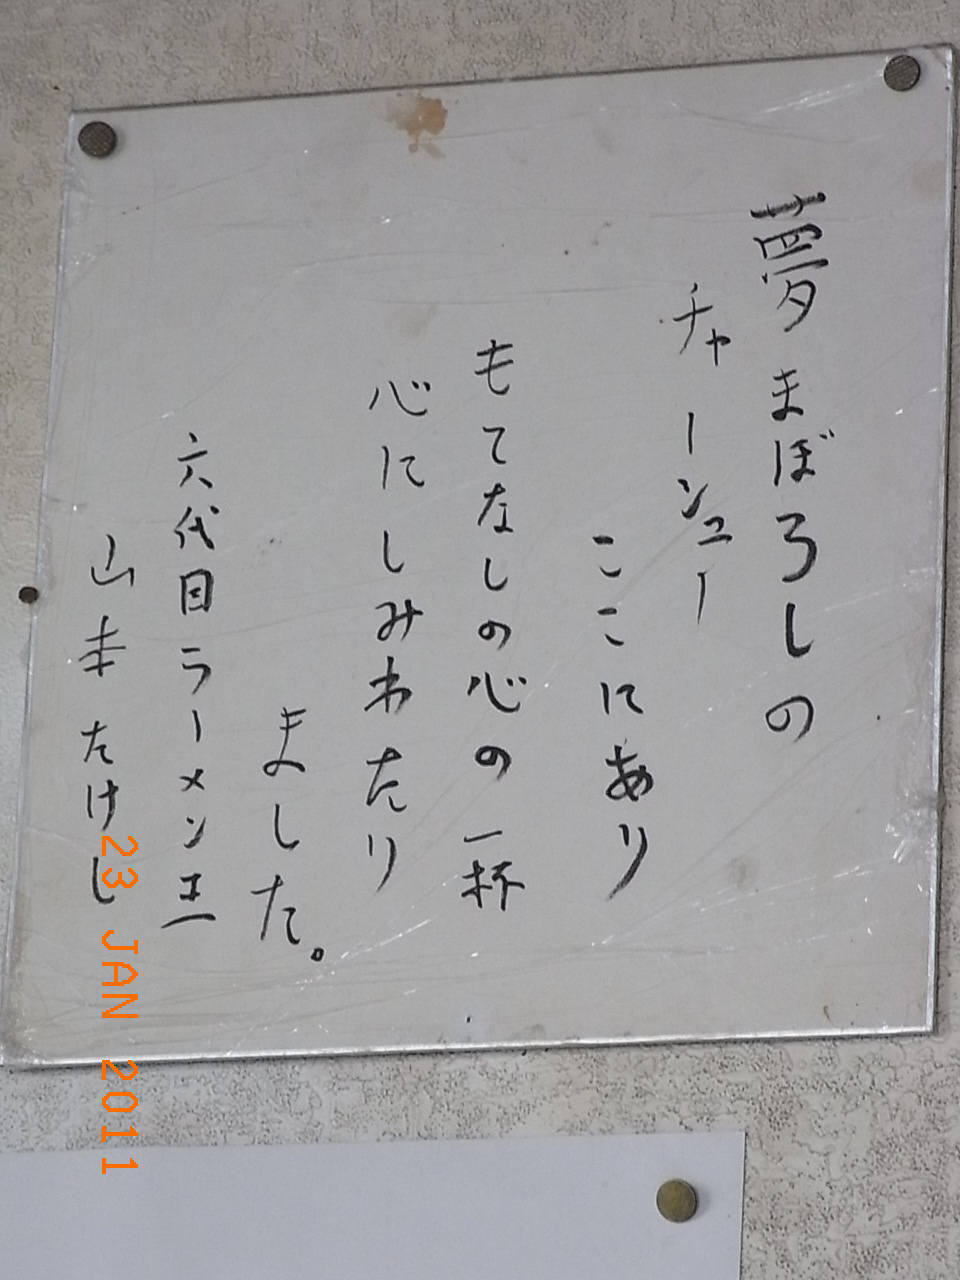 夢まぼろしの
チャーシュー
ここにあり
もてなしの心の一杯
心にしみわたり
ました。
六代目ラーメン王
山本たけし
23 JAN 2011